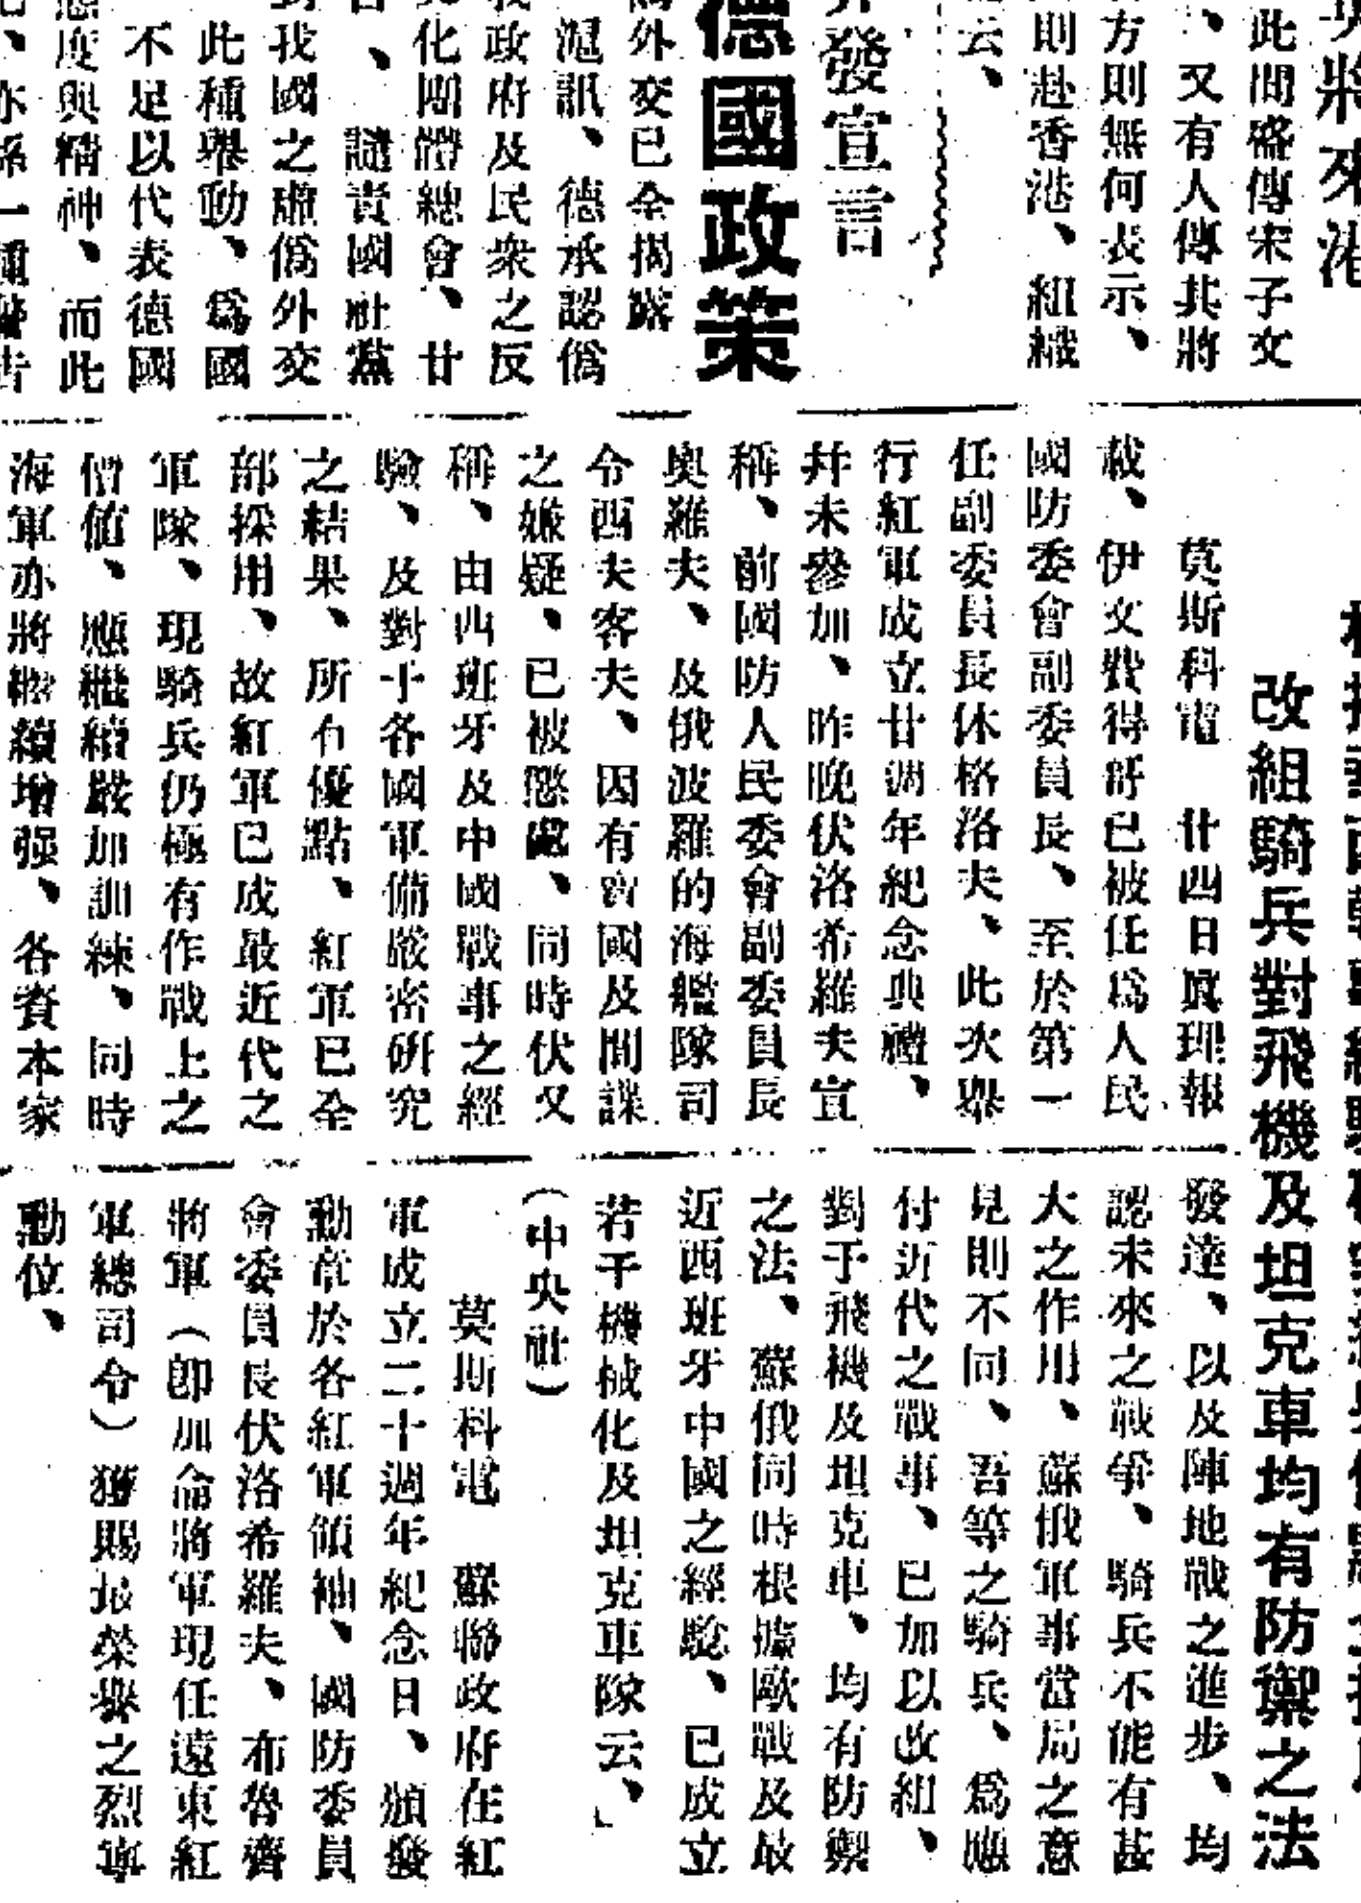 將來港
此間盛傳宋子文
、又有人傳其將
方則無何表示、
則赴香港、組織
云、
發宣言
德國政策
外交已全揭露
滬訊、德承認僞
政府及民衆之反
化團體總會、廿
、譴責國社黨
我國之虛僞外交
此種舉動、爲國
不足以代表德國
態度與精神、而此
、亦係一種警告
改組騎兵對飛機及坦克車均有防禦之法
莫斯科電　廿四日眞理報
載、伊文費得舒已被任爲人民
國防委會副委員長、至於第一
任副委員長休格洛夫、此次舉
行紅軍成立廿週年紀念典禮、
幷未參加、昨晚伏洛希羅夫宣
稱、前國防人民委會副委員長
奥羅夫、及俄波羅的海艦隊司
令西夫客夫、因有賣國及間諜
之嫌疑、已被懲處、同時伏又
稱、由西班牙及中國戰事之經
驗、及對于各國軍備嚴密研究
之結果、所有優點、紅軍已全
部採用、故紅軍已成最近代之
軍隊、現騎兵仍極有作戰上之
價值、應繼續嚴加訓練、同時
海軍亦將繼續增强、各資本家
發達、以及陣地戰之進步、均
認未來之戰爭、騎兵不能有甚
大之作用、蘇俄軍事當局之意
見則不同、吾等之騎兵、爲應
付近代之戰事、已加以改組、
對于飛機及坦克車、均有防禦
之法、蘇俄同時根據歐戰及最
近西班牙中國之經驗、已成立
若干機械化及坦克車隊云、」
（中央社）
莫斯科電　蘇聯政府在紅
軍成立二十週年紀念日、頒發
勳章於各紅軍領袖、國防委員
會委員長伏洛希羅夫、布魯齊
將軍（卽加侖將軍現任遠東紅
軍總司令）獲賜最榮譽之烈寧
勳位、